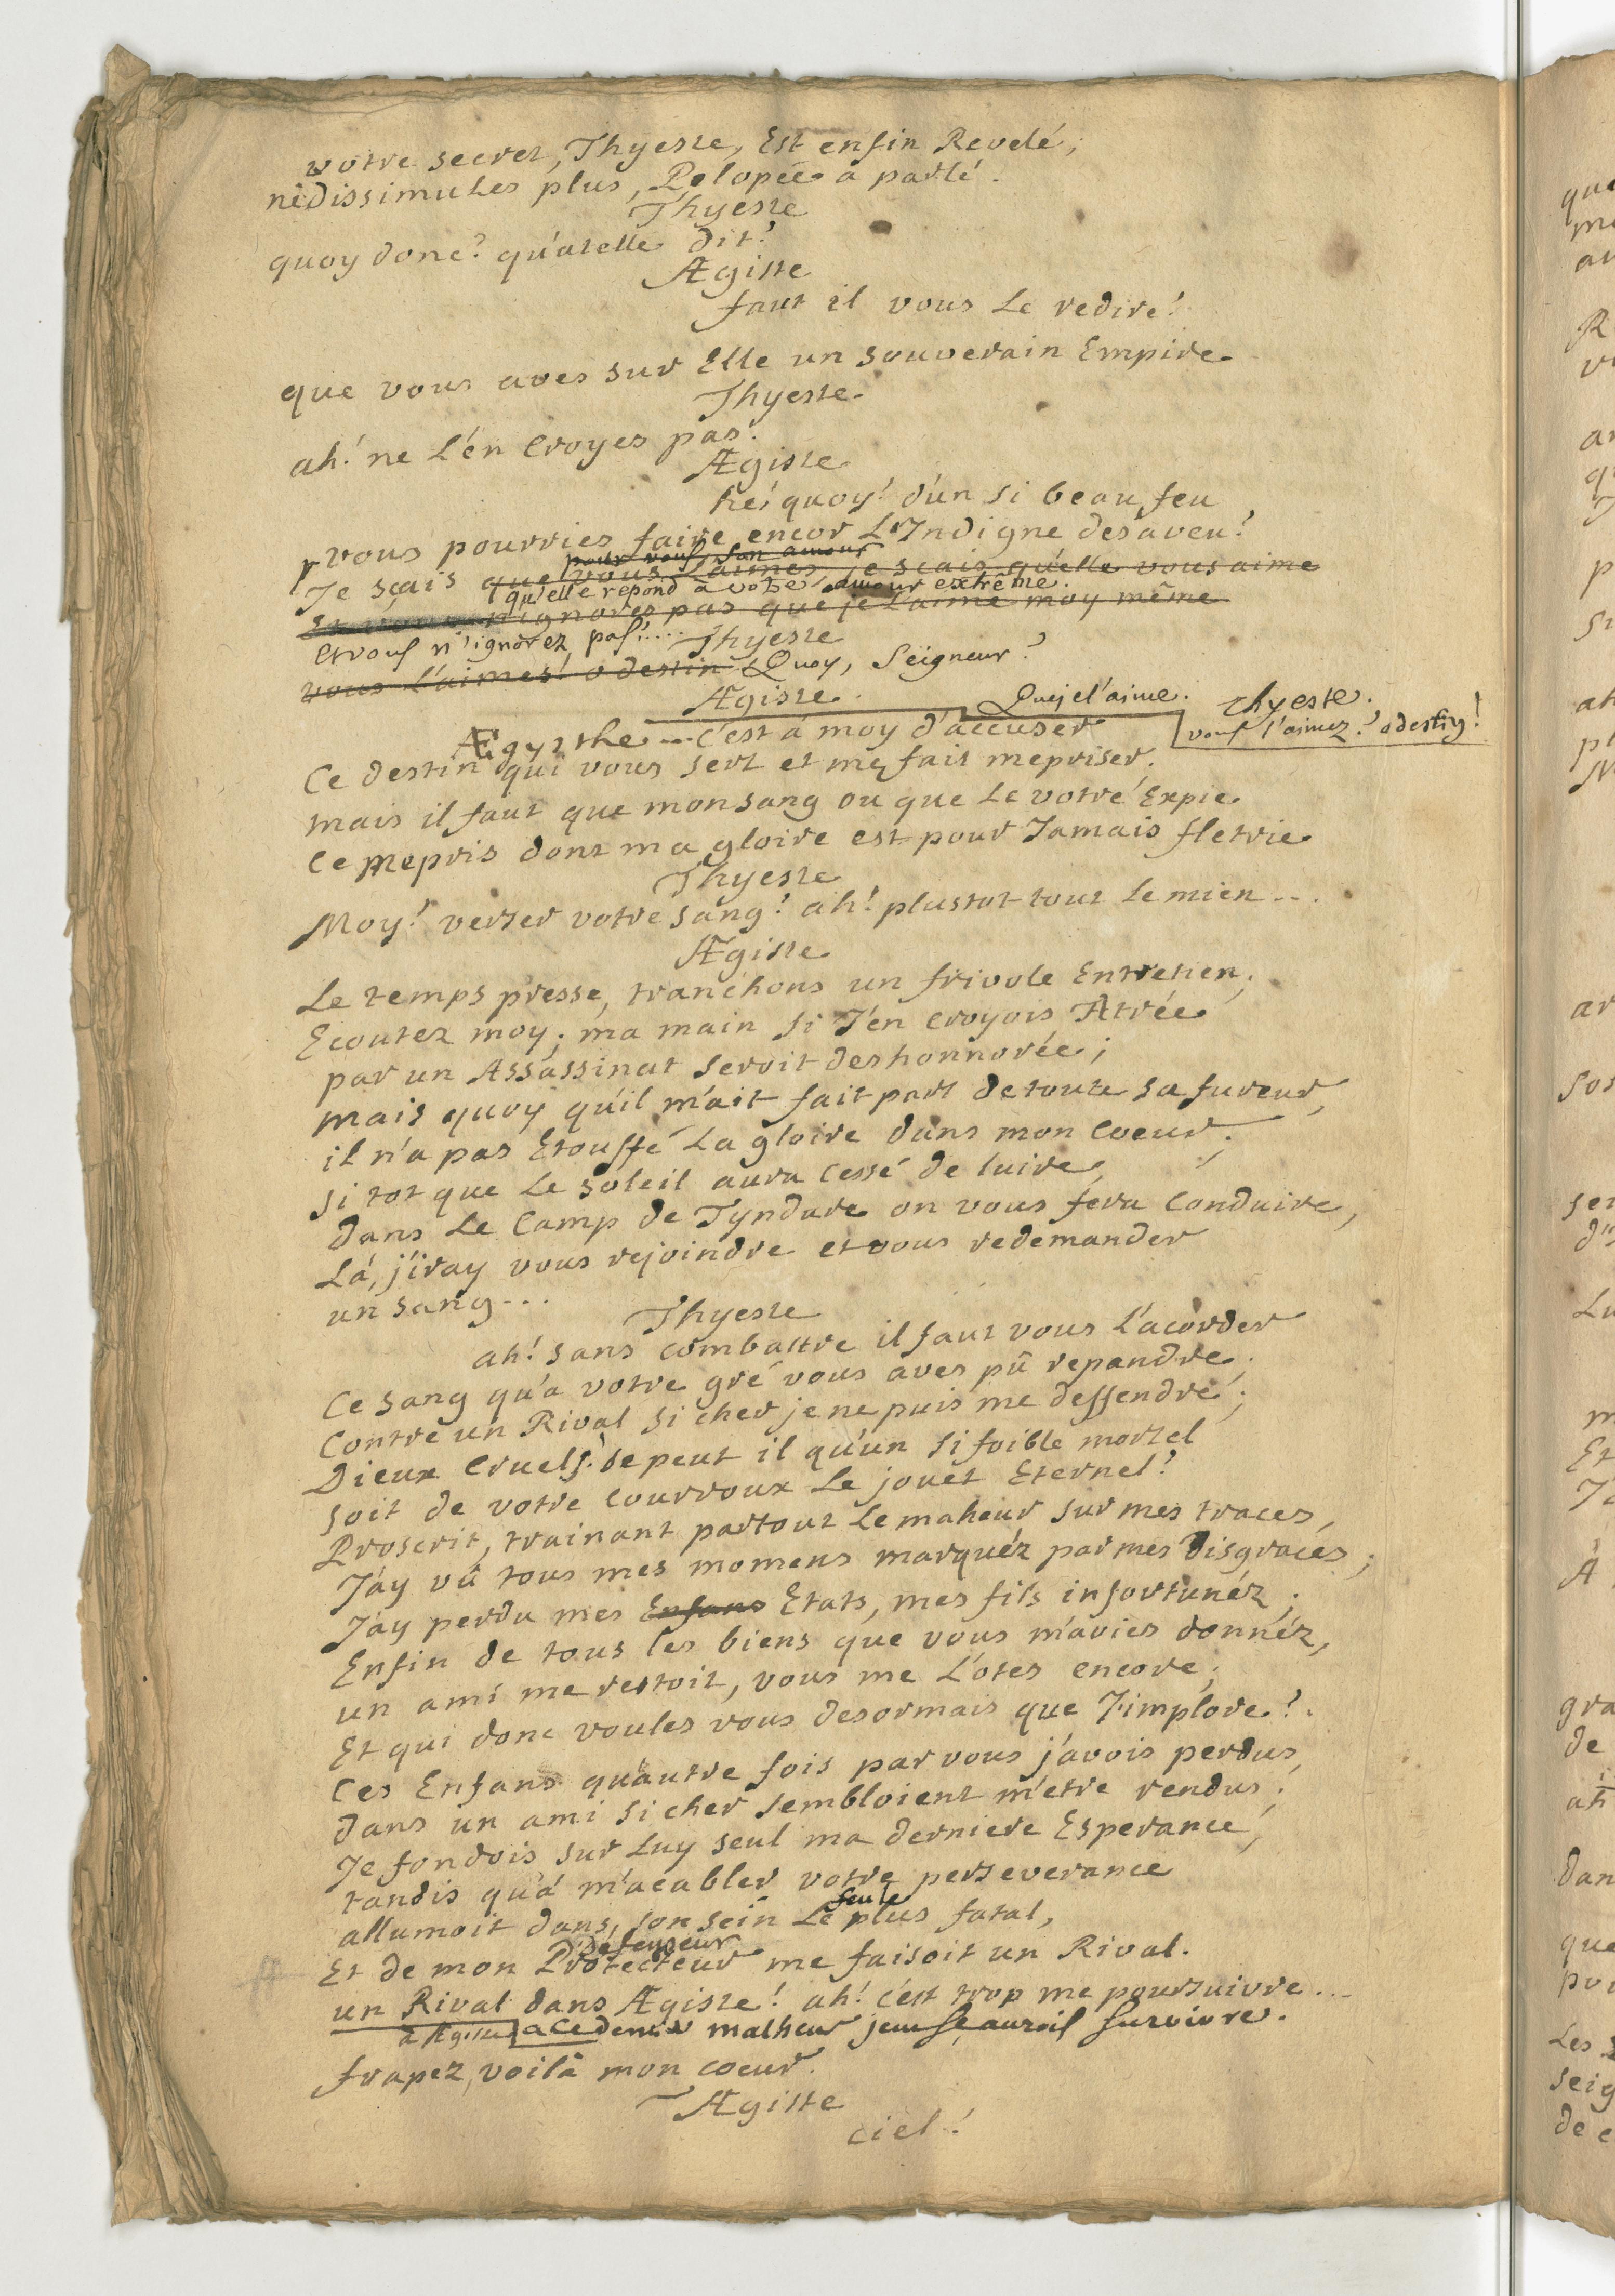 votre secret, Thyeste, Est enfin Revelé;
ne dissimules plus, Pelopée a parlé.
Thyeste
quoy donc? qu'atelle dit?
Ægiste
faut il vous Le redire!
que vous aves sur Elle un souverain Empire
Thyeste
ah! ne L'én croyes pas!
Ægiste
hé! quoy! d'un si beau feu
vous pourries faire encor L'Indigne desaveu?
pour vous, son amour
Je sçais que vous l'aimes, je sçais qu'elle vous aime
qu'elle repond à votre amour extrême.
Et vous n'ignores pas que je l'aime moy même
et vous n'ignorez pas!....
Thyeste
vous l'aimes! o destin Quoy, Seigneur?
Ægiste
Que je l'aime.
Thyeste.
vous l'aimez? o destin!
Ægysthe --- c'est á moy d'accuser
Ce destin qui vous sert et me fait mepriser.
mais il faut que mon sang ou que Le votre Expie
Ce mepris dont ma gloire est pour Jamais fletrie
Thyeste
Moy! verser votre sang! ah! plustot tout Le mien...
Ægiste
Le temps presse, tranchons un frivole Entretien;
Ecoutez moy; ma main si J'en croyois Atrée
par un Assassinat seroit deshonnorée;
mais quoy qu'il m'ait fait part de toute sa fureur,
il n'a pas Etouffé La gloire dans mon Coeur.
si tot que Le soleil aura cessé de luire,
dans Le Camp de Tyndare on vous fera Conduire,
Lá, j'iray vous rejoindre et vous redemander
un sang...
Thyeste
ah! sans combattre il faut vous L'acorder
Ce sang qu'a votre gré vous aves pû repandre;
Contre un Rival si cher je ne puis me deffendre;
Dieux Cruels! se peut il qu'un si foible mortel
soit de votre Courroux Le jouet Eternel?
Proscrit, trainant partout Le maheur sur mes traces,
J'áy vû tous mes momens marquéz par mes Disgraces;
J'áy perdu mes Enfans Etats, mes fils infortunéz;
Enfin de tous les biens que vous m'avies donnéz,
un ami me restoit, vous me L'otes encore;
Et qui donc voules vous desormais que J'implore?
Ces Enfans qu'autre fois par vous j'avois perdus,
dans un ami si cher sembloient m'etre rendus;
Je fondois sur Luy seul ma derniere Esperance,
tandis qu'á m'acabler votre perseverance
feu le
allumoit dans son sein Le plus fatal,
Défenseur
Et de mon Protecteur me faisoit un Rival.
un Rival dans Ægiste! ah! c'est trop me poursuivre...
à Ægiste a ce dernier malheur je ne sçaurois survivre.
frapez, voilà mon coeur.
Ægiste
ciel!